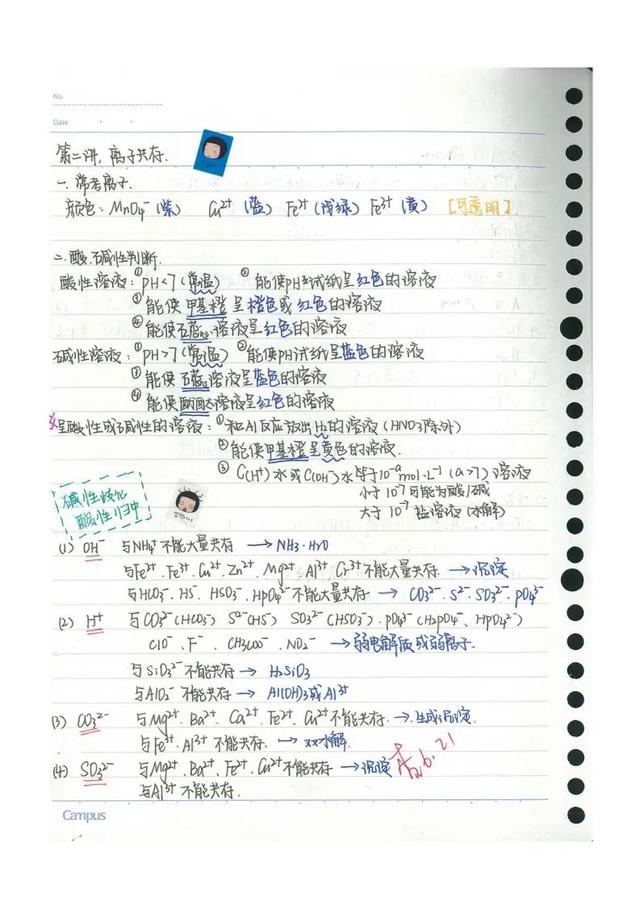 No.
Date
第二讲，离子共存.
一.常考离子.
颜色：MnO₄⁻(紫) Cu²⁺(蓝) Fe²⁺(浅绿) Fe³⁺(黄) [可透明]
二.酸.碱性判断.
酸性溶液：①pH<7(常温) ②能使pH试纸呈红色的溶液
③能使甲基橙呈橙色或红色的溶液
④能使石蕊溶液呈红色的溶液
碱性溶液：①pH>7(常温) ②能使pH试纸呈蓝色的溶液
③能使石蕊溶液呈蓝色的溶液
④能使酚酞溶液呈红色的溶液
呈酸性或碱性的溶液：①和Al反应放出H₂的溶液(HNO₃除外)
②能使甲基橙呈黄色的溶液.
③C(H⁺)水或C(OH⁻)水等于10⁻ᵃmol·L⁻¹(a>7)溶液
小于10⁻⁷可能为酸/碱
大于10⁻⁷盐溶液(水解)
碱性
酸性归中
(1) OH⁻ 与NH₄⁺不能大量共存 →NH₃·H₂O
与Fe²⁺.Fe³⁺.Cu²⁺.Zn²⁺.Mg²⁺.Al³⁺.Cr³⁺不能大量共存. →沉淀
与HCO₃⁻.HS⁻.HSO₃⁻.HPO₄²⁻不能大量共存 → CO₃²⁻.S²⁻.SO₃²⁻.PO₄³⁻
(2) H⁺ 与CO₃²⁻(HCO₃⁻) S²⁻(HS⁻) SO₃²⁻(HSO₃⁻).PO₄³⁻(H₂PO₄⁻、HPO₄²⁻)
ClO⁻.F⁻.CH₃COO⁻.NO₂⁻ →弱电解质或弱离子.
与SiO₃²⁻不能共存→ H₂SiO₃
与AlO₂⁻不能共存→ Al(OH)₃或Al³⁺
(3) CO₃²⁻ 与Mg²⁺.Ba²⁺.Ca²⁺.Fe²⁺.Cu²⁺不能共存 →生成沉淀.
与Fe³⁺.Al³⁺不能共存. →双水解.
(4) SO₃²⁻ 与Mg²⁺.Ba²⁺.Fe²⁺.Cu²⁺不能共存 →沉淀
A⁺ 6.21
与Al³⁺不能共存.
Campus